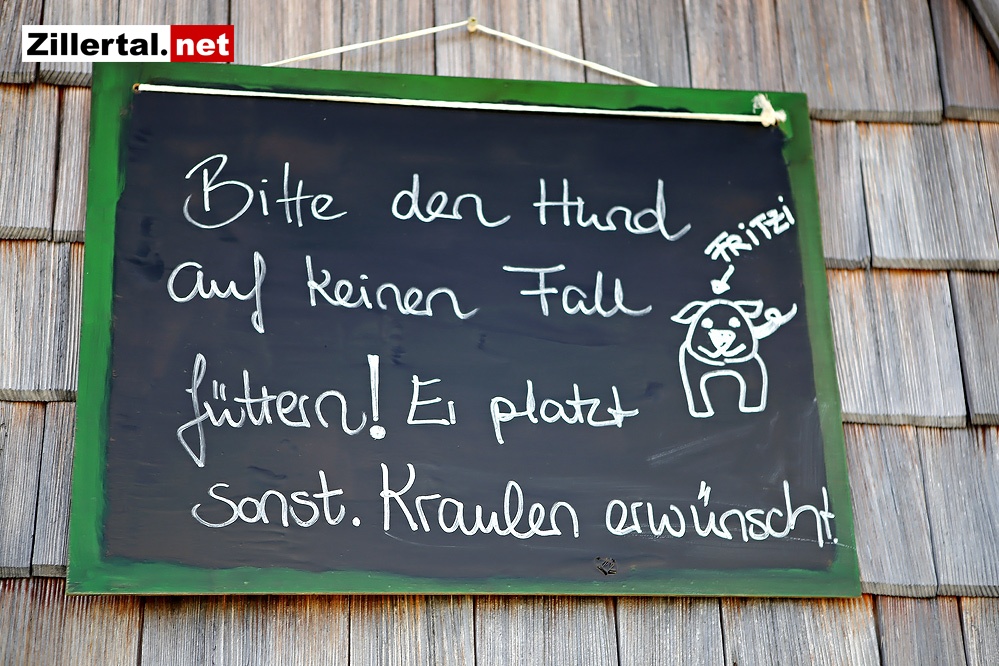 Zillertal.net
Bitte den Hund
FRITZI
auf keinen Fall
füttern! Er platzt
sonst. Kraulen erwünscht.